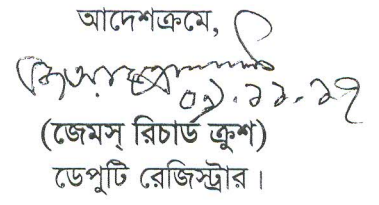 আদেশক্রমে,
০৯.১১.১৭
(জেমস্ রিচার্ড ক্রুশ)
ডেপুটি রেজিস্ট্রার।